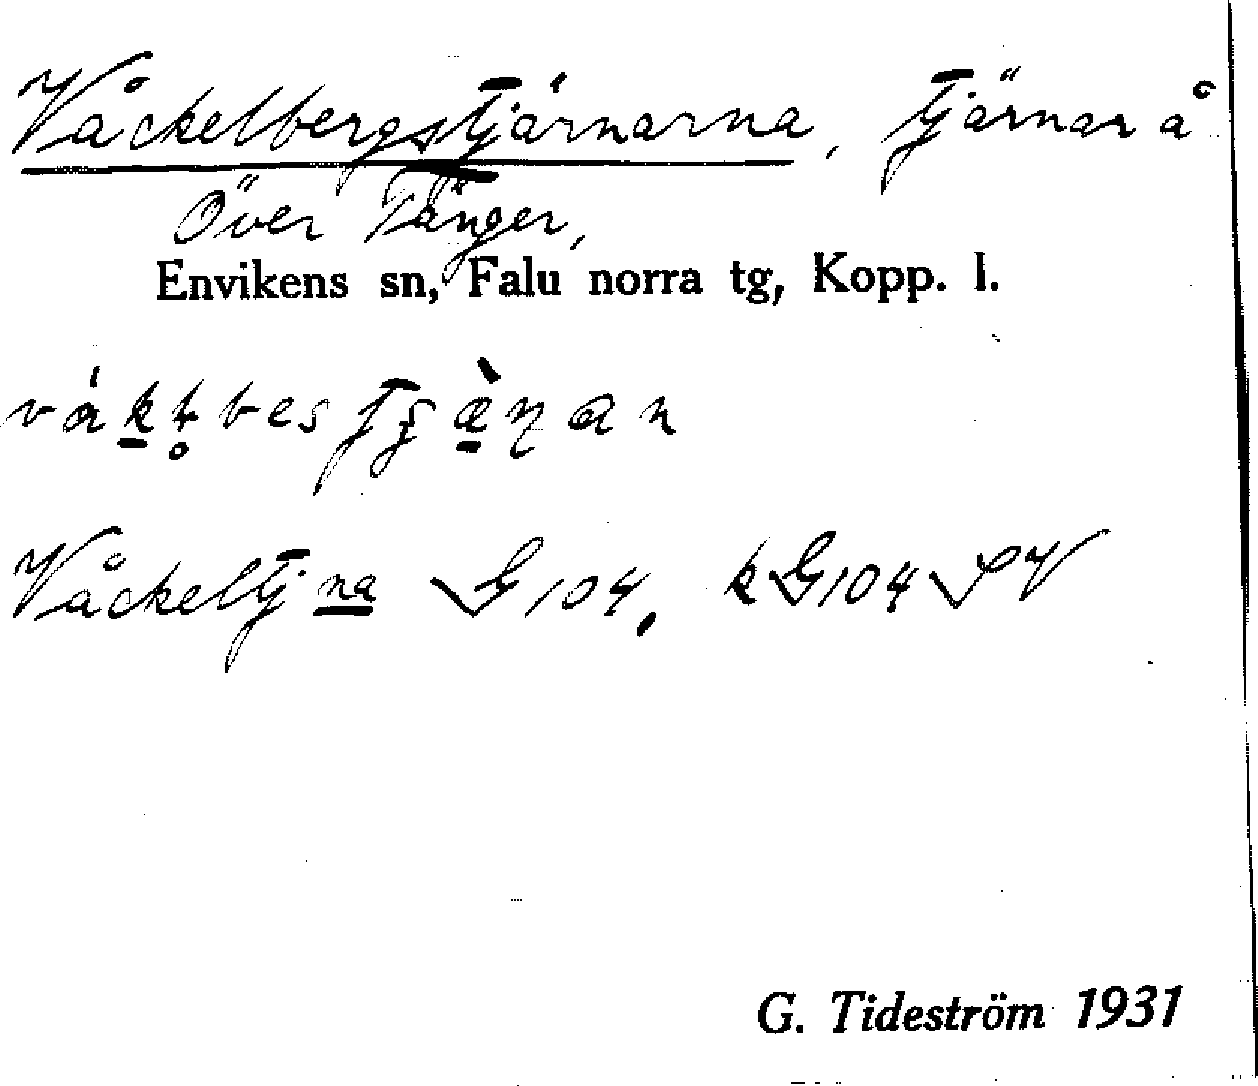 Våckelbergstjärnarna, tjärnar å
Över Tänger,
Envikens sn, Falu norra tg, Kopp. l.
Våckeltj na G 104, k G 104 SV
G. Tideström 1931